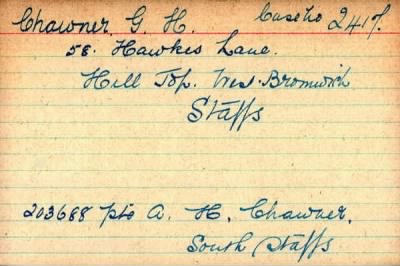 Chawner, G. H. Case No 2417.
58. Hawkes Lane.
Hill Top. West Bromwich
Staffs
203688 Pte A. H. Chawner.
South Staffs